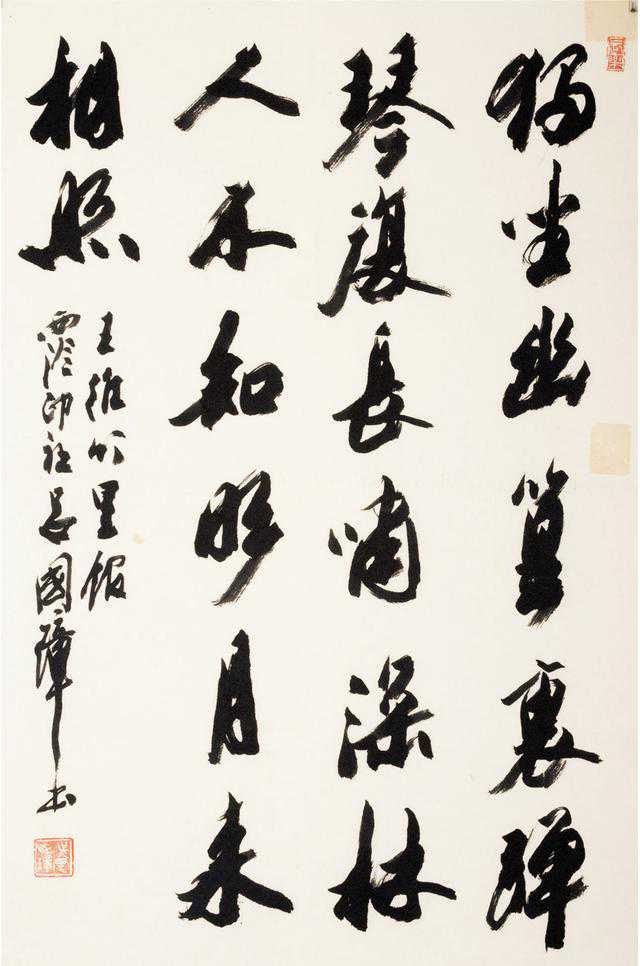 獨坐幽篁裏彈
琴復長嘯深林
人不知明月来
相照
王維竹里館
西泠印社吕國璋书